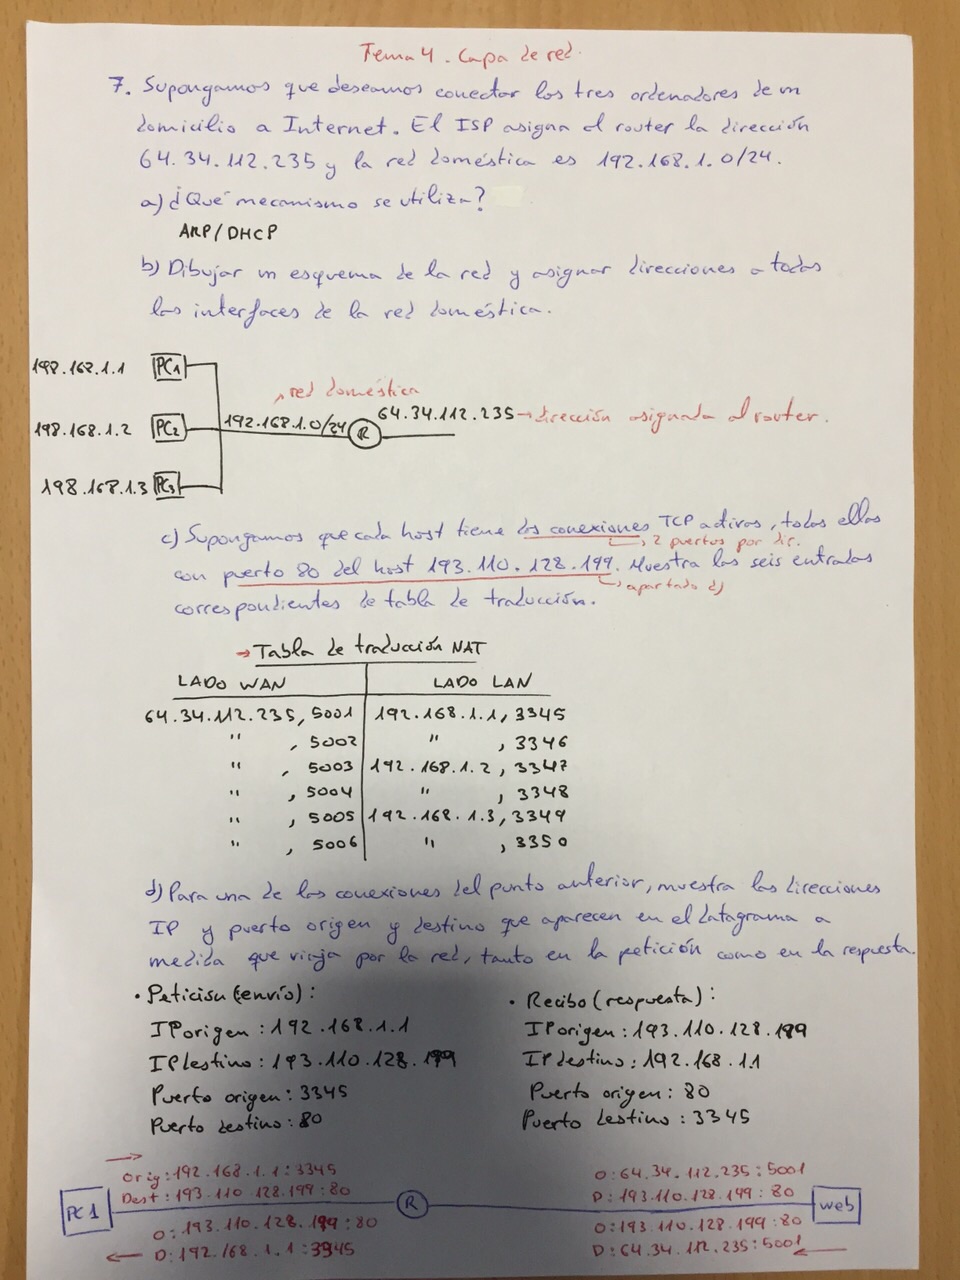 Tema 4. Capa de red.
7. Supongamos que deseamos conectar los tres ordenadores de un
domicilio a Internet. El ISP asigna al router la dirección
64.34.112.235 y la red doméstica es 192.168.1.0/24.
a) ¿Qué mecanismo se utiliza?
ARP/DHCP
b) Dibujar un esquema de la red y asignar direcciones a todas
las interfaces de la red doméstica.
198.168.1.1 PC1
red doméstica
64.34.112.235 → dirección asignada al router.
198.168.1.2 PC2 192.168.1.0/24 R
198.168.1.3 PC3
c) Supongamos que cada host tiene dos conexiones TCP activas, todas ellas
2 puertos por dir.
con puerto 80 del host 193.110.128.199. Muestra las seis entradas
apartado d)
correspondientes de tabla de traducción.
→ Tabla de traducción NAT
LADO WAN LADO LAN
64.34.112.235, 5001 192.168.1.1, 3345
" , 5002 " , 3346
" , 5003 192.168.1.2, 3347
" , 5004 " , 3348
" , 5005 192.168.1.3, 3349
" , 5006 " , 3350
d) Para una de las conexiones del punto anterior, muestra las direcciones
IP y puerto origen y destino que aparecen en el datagrama a
medida que viaja por la red, tanto en la petición como en la respuesta.
• Petición (envío):
IP origen: 192.168.1.1
IP destino: 193.110.128.199
Puerto origen: 3345
Puerto destino: 80
• Recibo (respuesta):
IP origen: 193.110.128.199
IP destino: 192.168.1.1
Puerto origen: 80
Puerto destino: 3345
Orig: 192.168.1.1:3345
Dest: 193.110.128.199:80
O: 64.34.112.235:5001
D: 193.110.128.199:80
PC1 R web
O: 193.110.128.199:80
D: 192.168.1.1:3345
O: 193.110.128.199:80
D: 64.34.112.235:5001